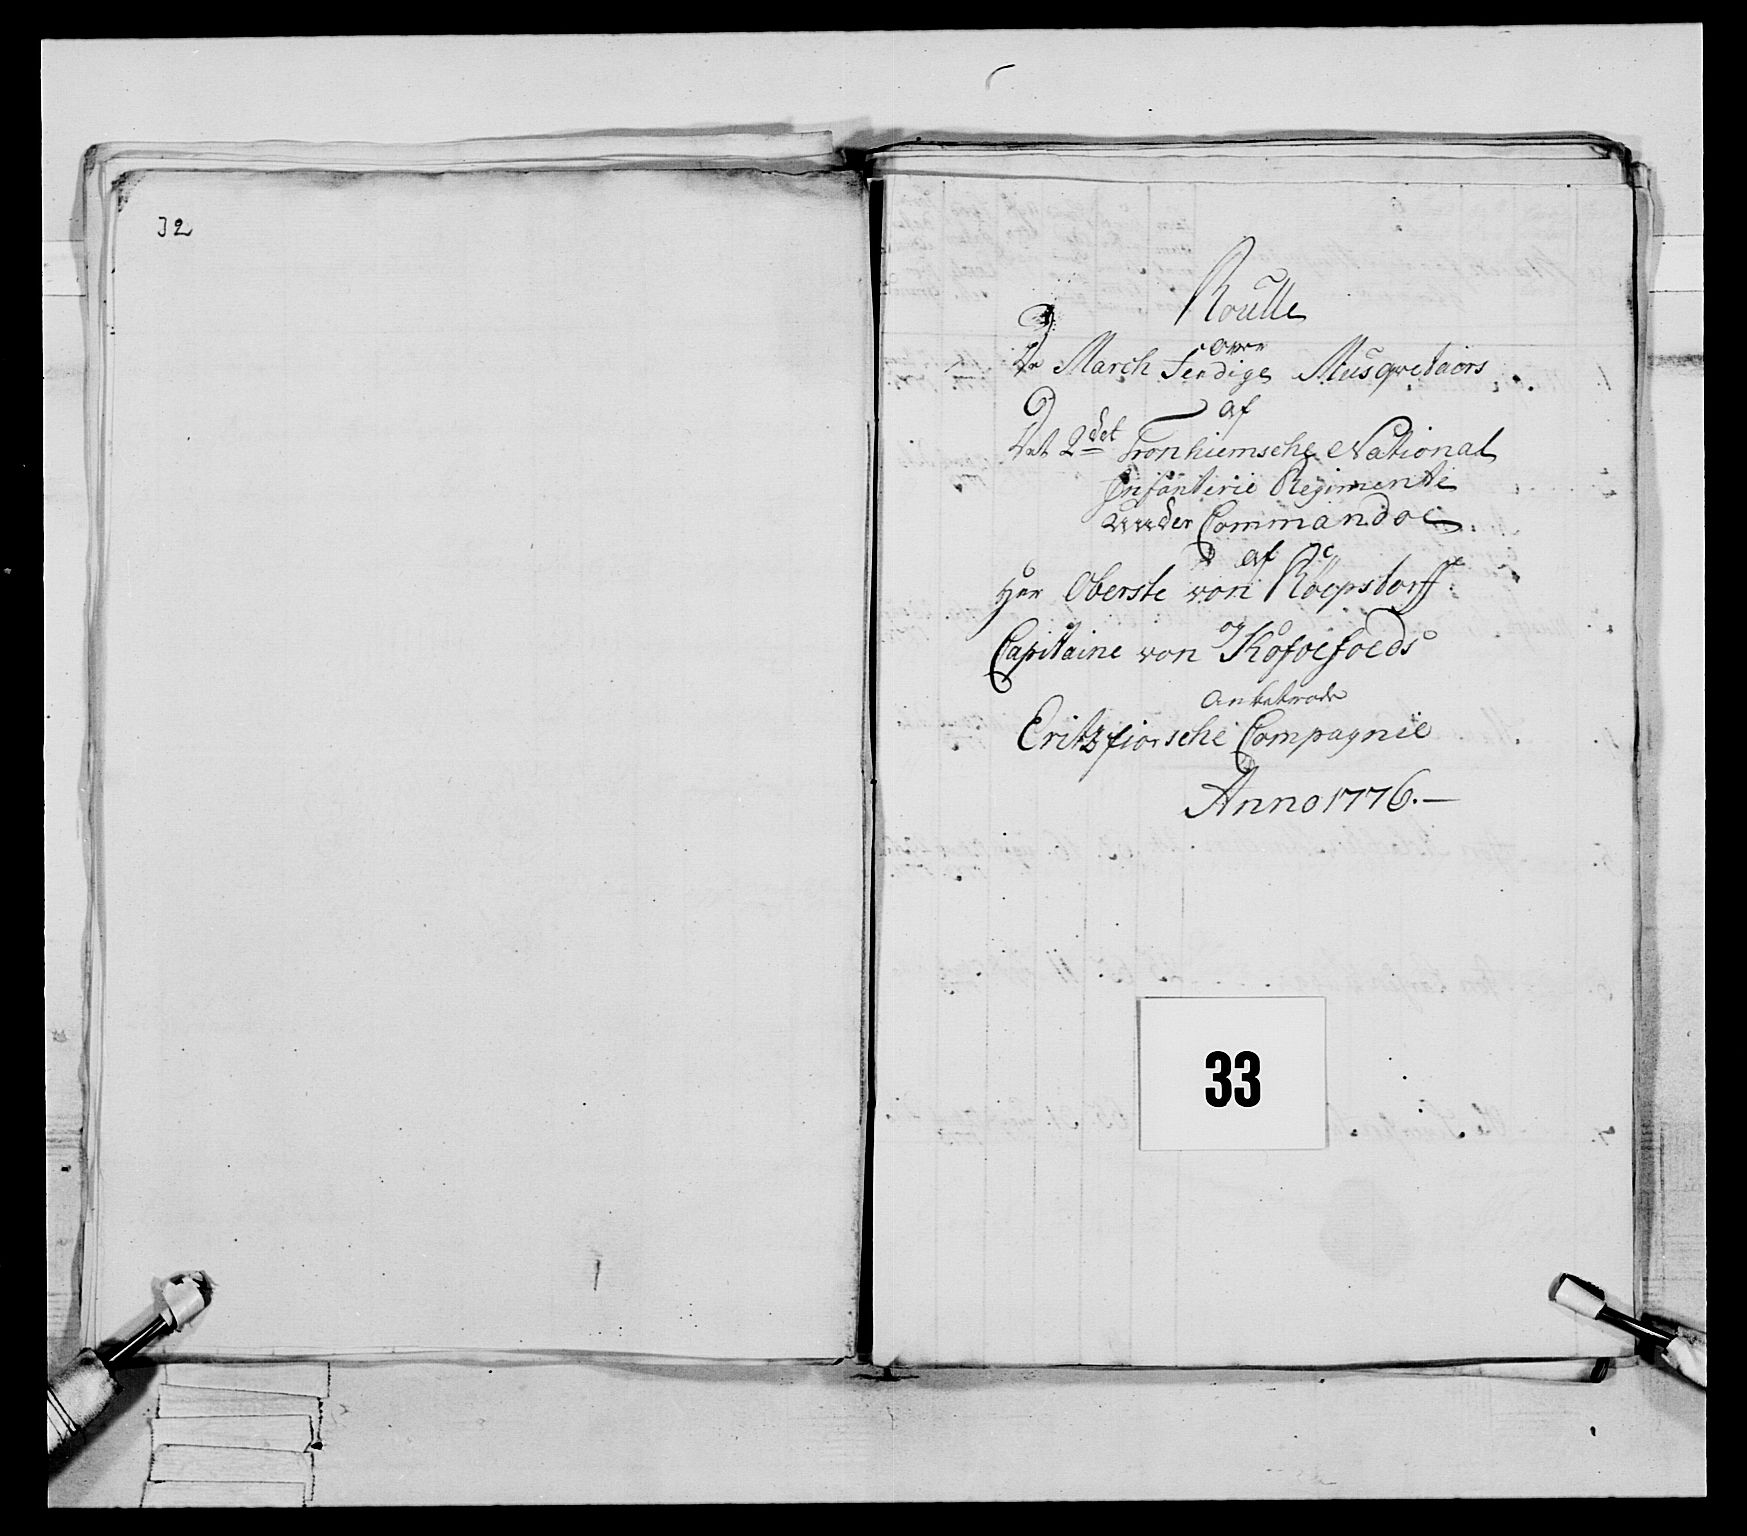 32
Roulle
over
De March Ferdige Musqvetairs
af
Det 2det Tronhiemsche National
Infanterie Regimente
under Commandoe
af
Herr Oberste von Röepstorff
og
Capitaine von Kofoefoeds
Anbetrode
Eritzfiorsche Compagnie
Anno 1776.—
33